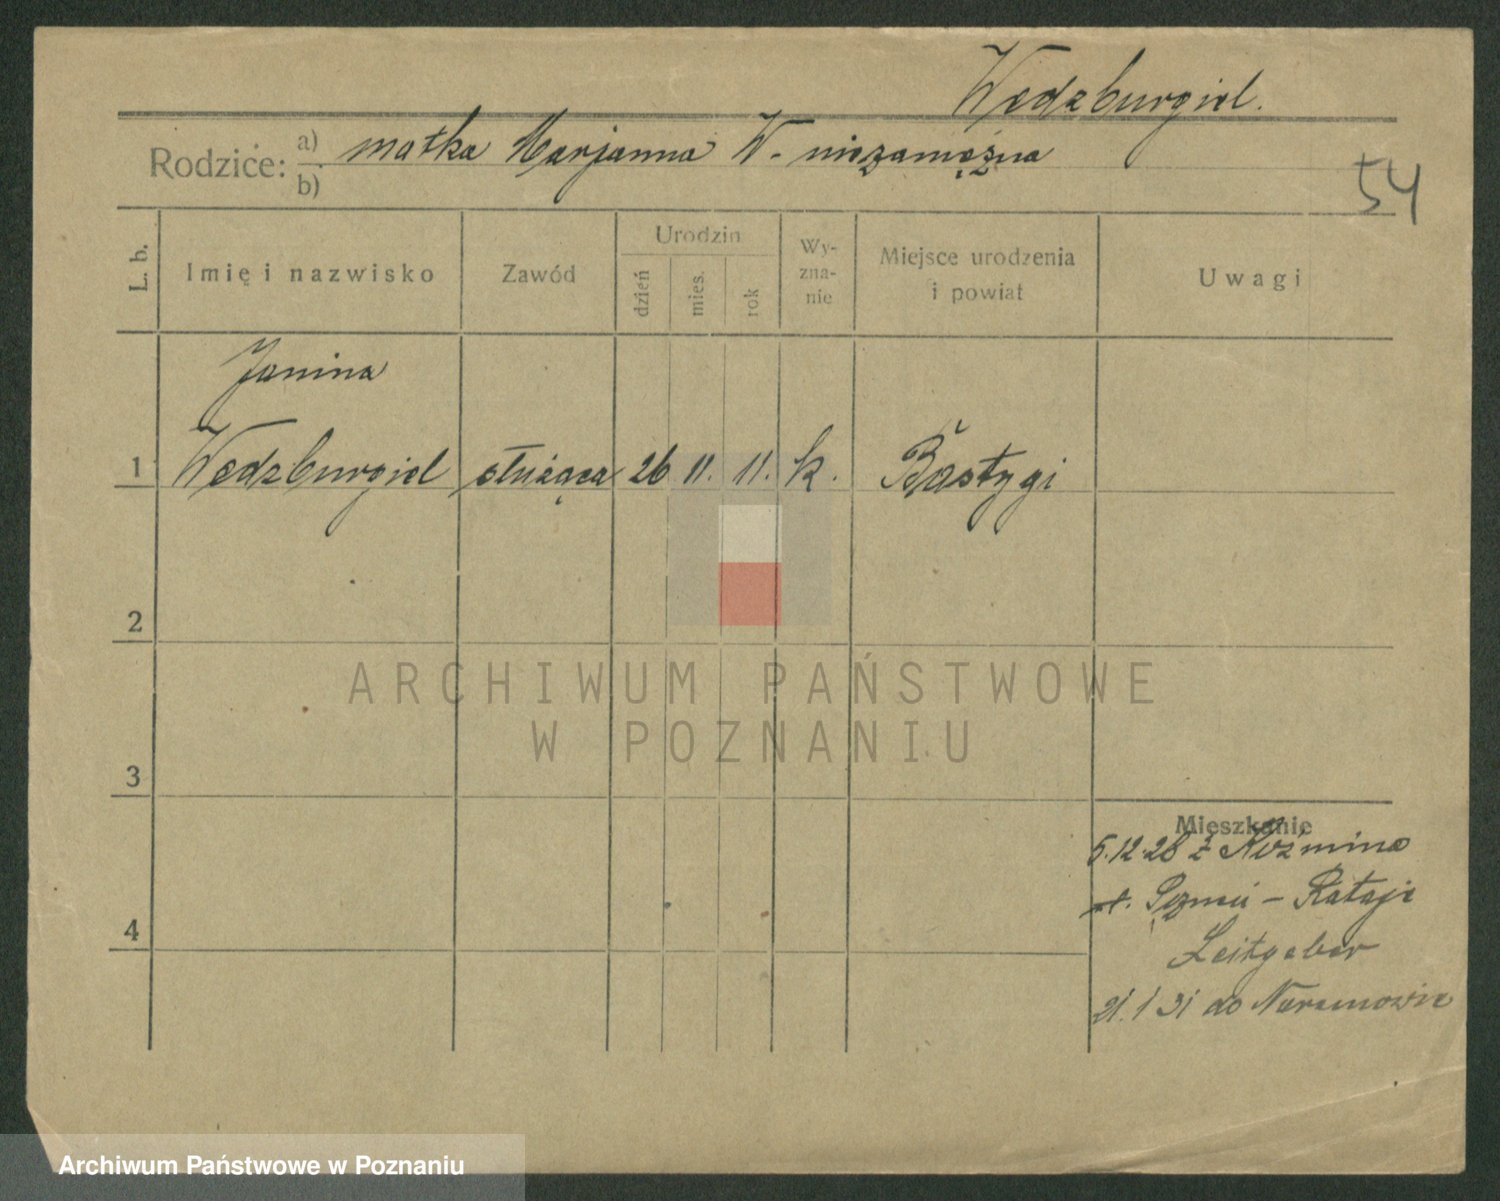 Wedzburgiel.
Rodzice: a) matka Marjanna W. niezamężna
b)
54
L. b. Imię i nazwisko Zawód Urodzin dzień mies. rok Wyznanie Miejsce urodzenia i powiat Uwagi
Janina
1 Wedzburgiel służąca 26 11. 11. k. Bastygi
2
3
4
Mieszkanie
5.12.28 z Koźmina
Rataje
Leitgeber
21. 1 31 do Naramowic
ARCHIWUM PAŃSTWOWE
W POZNANIU
Archiwum Państwowe w Poznaniu